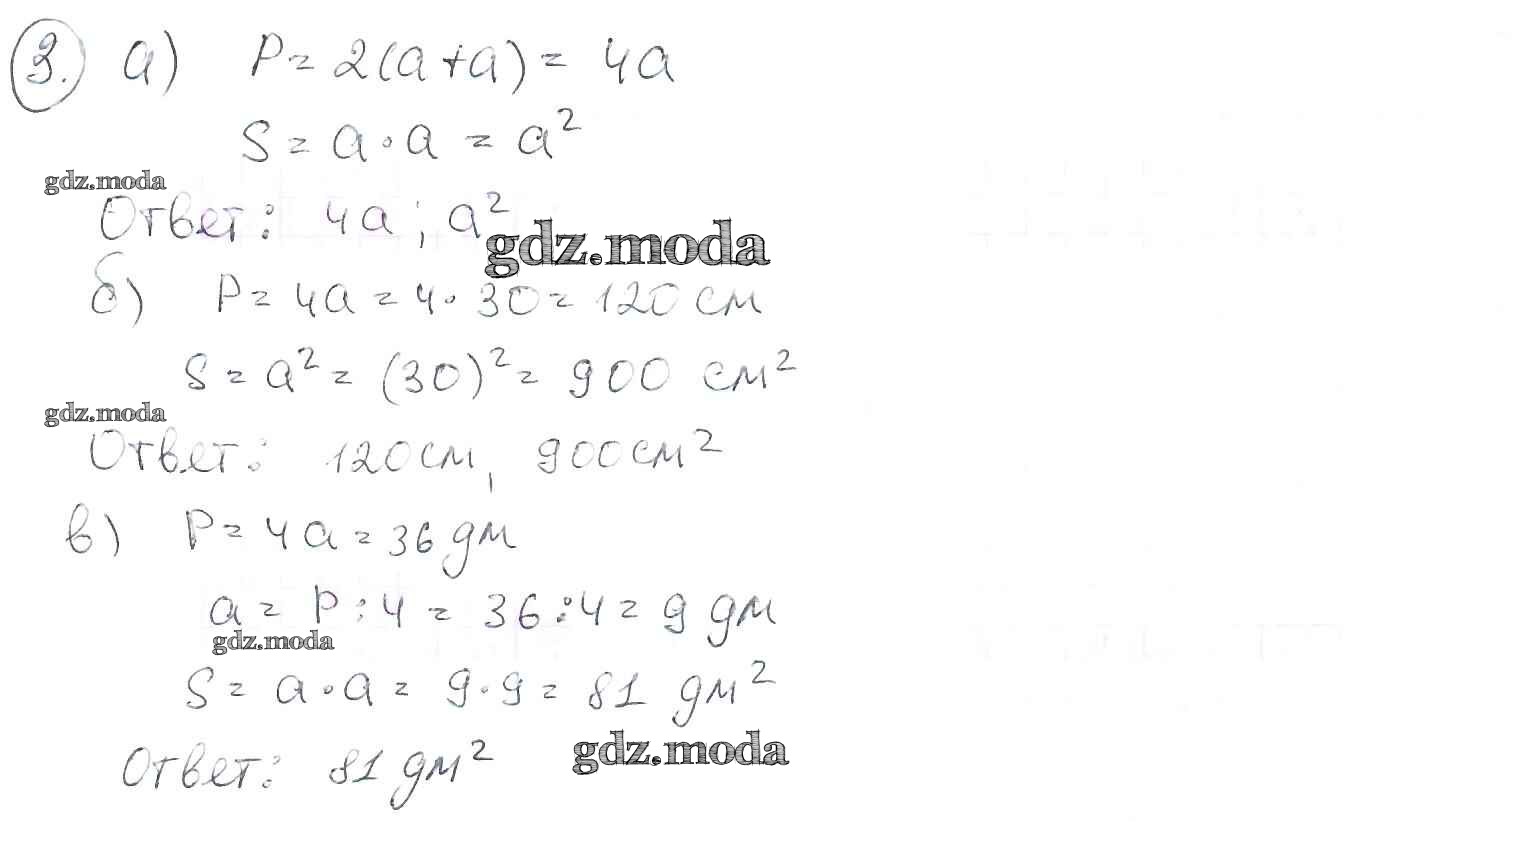 3. а) P = 2(a+a) = 4a
S = a·a = a²
gdz.moda
Ответ: 4a; a²
gdz.moda
б) P = 4a = 4·30 = 120 см
S = a² = (30)² = 900 см²
gdz.moda
Ответ: 120 см, 900 см²
в) P = 4a = 36 дм
a = P:4 = 36:4 = 9 дм
gdz.moda
S = a·a = 9·9 = 81 дм²
gdz.moda
Ответ: 81 дм²